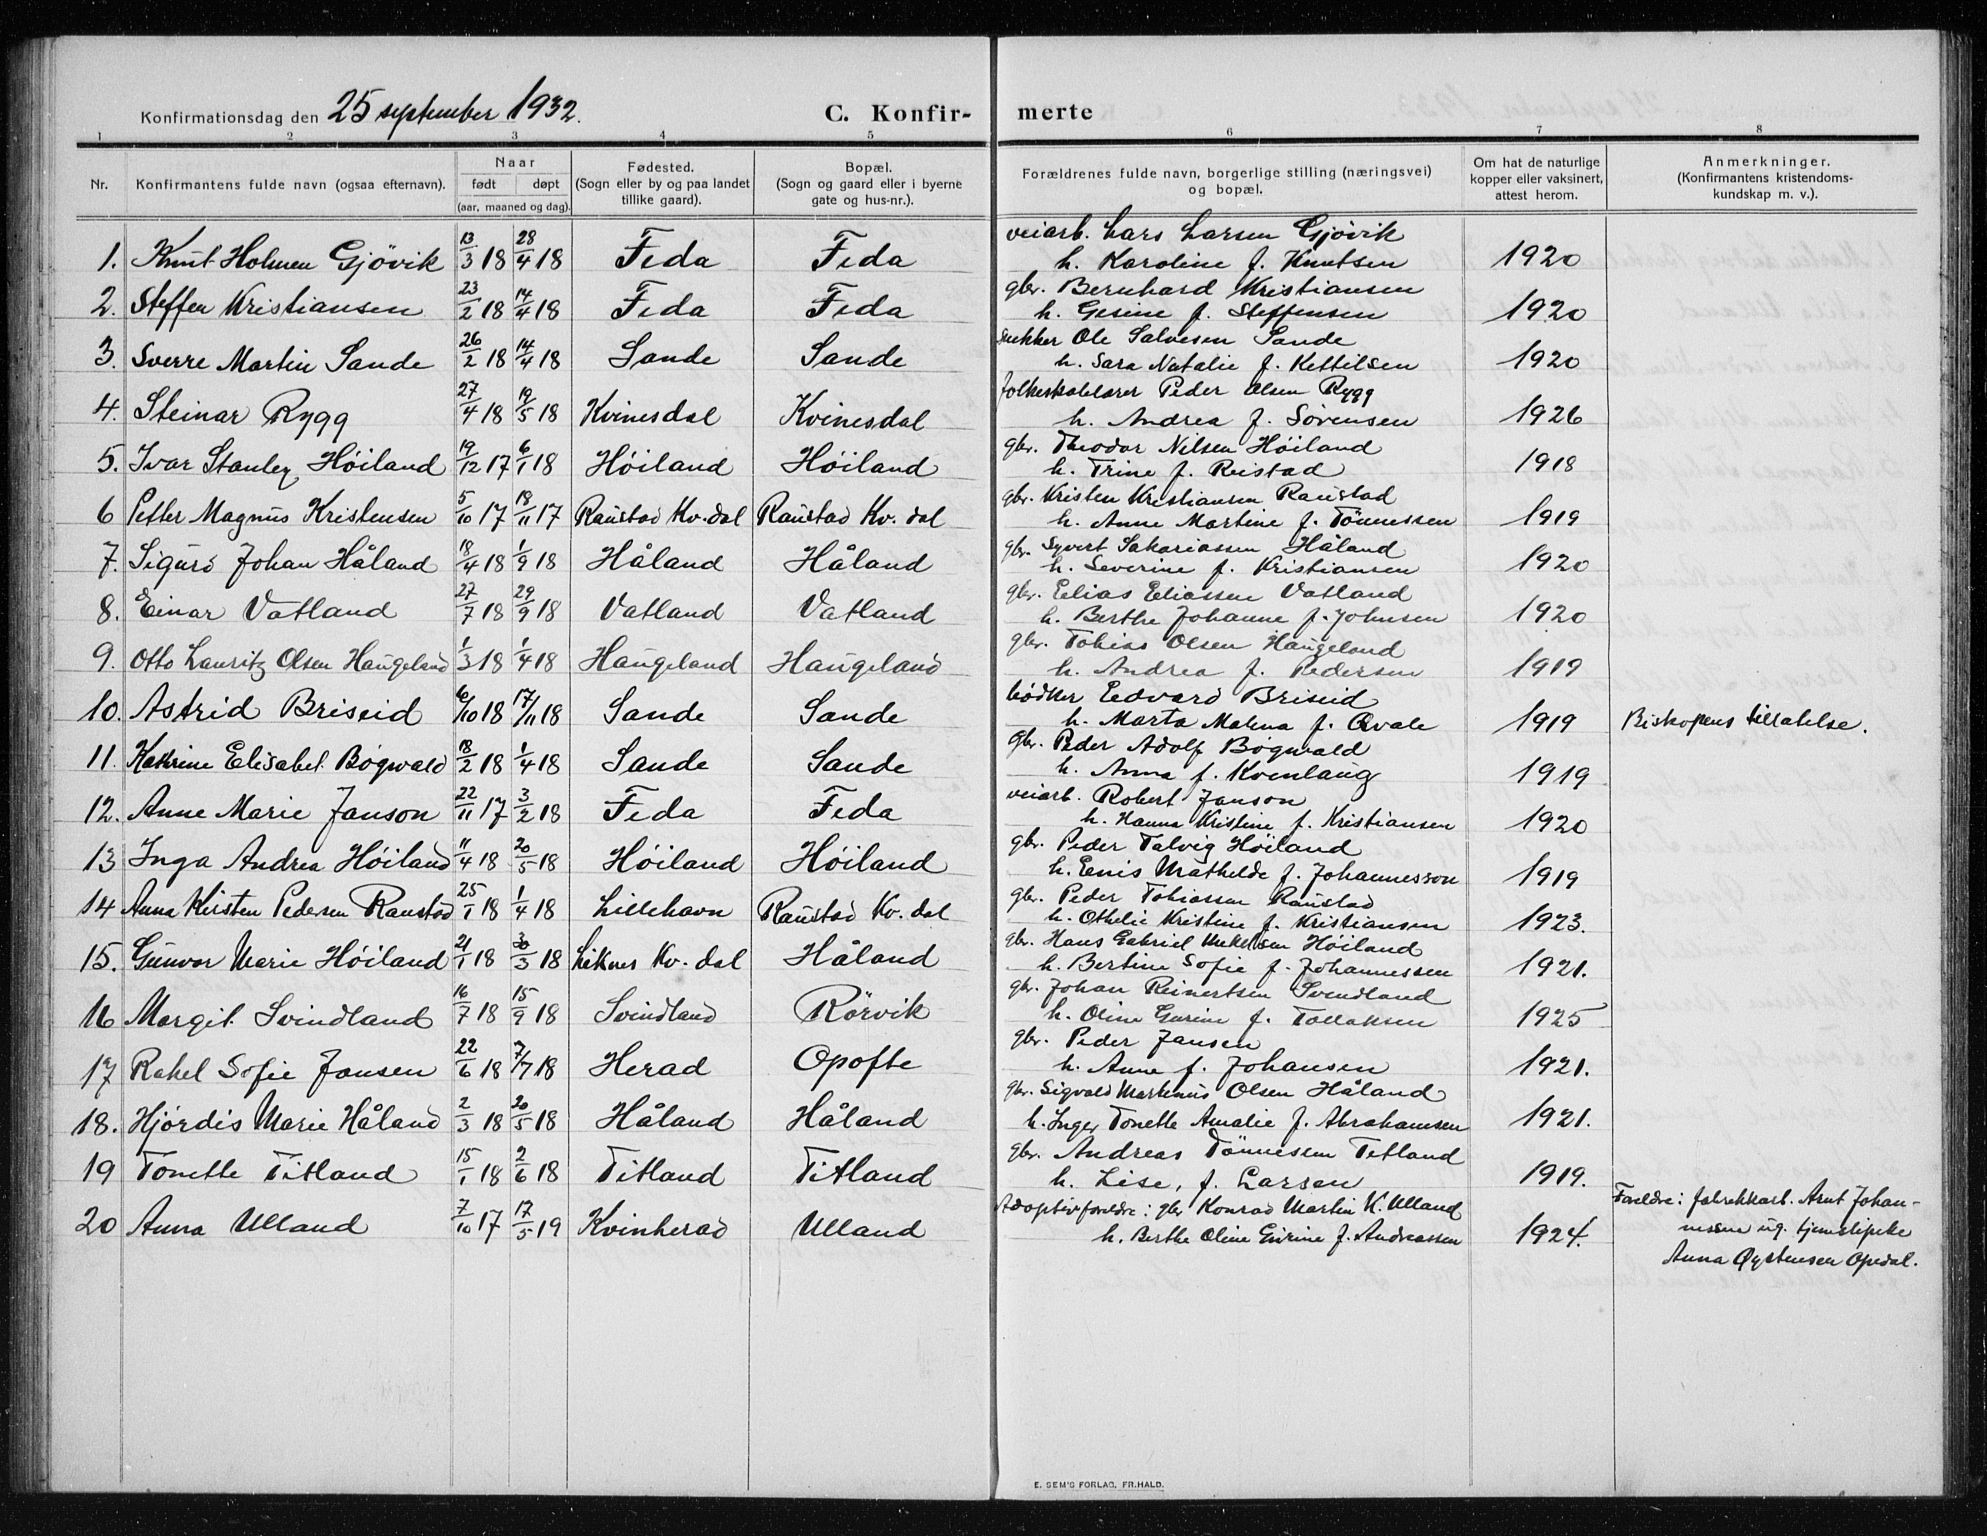 Konfirmationsdag den 25 september 1932.
C. Konfir-
merte
1 2 3 4 5 6 7 8
Nr.
Konfirmantens fulde navn (ogsaa efternavn).
Naar
født døpt
(aar, maaned og dag).
Fødested.
(Sogn eller by og paa landet
tillike gaard).
Bopæl.
(Sogn og gaard eller i byerne
gate og hus-nr.).
Forældrenes fulde navn, borgerlige stilling (næringsvei)
og bopæl.
Om hat de naturlige
kopper eller vaksinert,
attest herom.
Anmerkninger.
(Konfirmantens kristendoms-
kundskap m. v.).
veiarb. Lars Larsen Gjövik
1. Knut Holmen Gjövik 13/3 18 28/4 18 Feda Feda h. Karoline f. Knutsen 1920
gbr. Bernhard Kristiansen
2. Steffen Kristiansen 23/2 18 14/4 18 Feda Feda h. Gesine f. Steffensen 1920
Snekker Ole Salvesen Sande
3. Sverre Martin Sande 26/2 18 14/4 18 Sande Sande h. Sara Natalie f. Kettilsen 1920
folkeskolelærer Peder Olsen Rygg
4. Steinar Rygg 27/4 18 19/5 18 Kvinesdal Kvinesdal h. Andrea f. Sørensen 1926
gbr. Theodor Nilsen Höiland
5. Ivar Stanley Höiland 19/12 17 6/1 18 Höiland Höiland h. Trine f. Reistad 1918
gbr. Kristen Kristiansen Raustad
6 Petter Magnus Kristensen 5/10 17 18/11 17 Raustad Kv. dal Raustad Kv. dal h. Anne Martine f. Tönnessen 1919
gbr. Syvert Sakariassen Håland
7. Sigurd Johan Håland 18/4 18 1/9 18 Håland Håland h. Severine f. Kristiansen 1920
gbr. Elias Eliassen Vatland
8. Einar Vatland 27/7 18 29/9 18 Vatland Vatland h. Berthe Johanne f. Johnsen 1920
gbr. Tobias Olsen Haugeland
9. Otto Lauritz Olsen Haugeland 1/3 18 1/4 18 Haugeland Haugeland h. Andrea f. Pedersen 1919
bødker Edvard Briseid
10. Astrid Briseid 6/10 18 17/11 18 Sande Sande h. Marta Malena f. Qvale 1919 Biskopens tillatelse.
gbr. Peder Adolf Bögwald
11. Kathrine Elisabet Bögwald 18/2 18 1/4 18 Sande Sande h. Anna f. Kvenlaug 1919
veiarb. Robert Janson
12. Anne Marie Janson 22/11 17 3/2 18 Feda Feda h. Hanna Kristine f. Kristiansen 1920
gbr. Peder Talvig Höiland
13 Inga Andrea Höiland 11/4 18 20/5 18 Höiland Höiland h. Enis Mathelde f. Johannesson 1919
gbr. Peder Tobiassen Raustad
14 Anna Kirsten Pedersen Raustad 25/1 18 1/4 18 Lillehavn Raustad Kv. dal h. Othelie Kristine f. Kristiansen 1923.
gbr. Hans Gabriel Mikelsen Höiland
15. Gunvor Marie Höiland 21/1 18 30/3 18 Liknes Kv. dal Håland h. Bertine Sofie f. Johannessen 1921.
gbr. Johan Reinertsen Svindland
16 Margit Svindland 16/7 18 15/9 18 Svindland Rörvik h. Oline Gurine f. Tollaksen 1925
gbr. Peder Jansen
17 Rakel Sofie Jansen 22/6 18 7/7 18 Herad Opofte h. Anne f. Johansen 1921.
gbr. Sigvald Martinus Olsen Håland
18. Hjördis Marie Håland 2/3 18 20/5 18 Håland Håland h. Inger Tonette Amalie f. Abrahamsen 1921.
gbr. Andreas Tönnesen Tetland
19 Tonette Titland 15/1 18 2/6 18 Titland Titland h. Lise, f. Larsen 1919.
Adoptivforeldre: gbr Konrad Martin K. Ulland
20 Anna Ulland 7/10 17 17/5 19 Kvinherad Ulland h. Berthe Oline Gurine f. Andreassen 1924.
Foreldre: fabrikkarb. Arnt Johan-
nessen ug. tjenestpike
Anna Øystensen Opedal.
E. SEM'S FORLAG, FR.HALD.